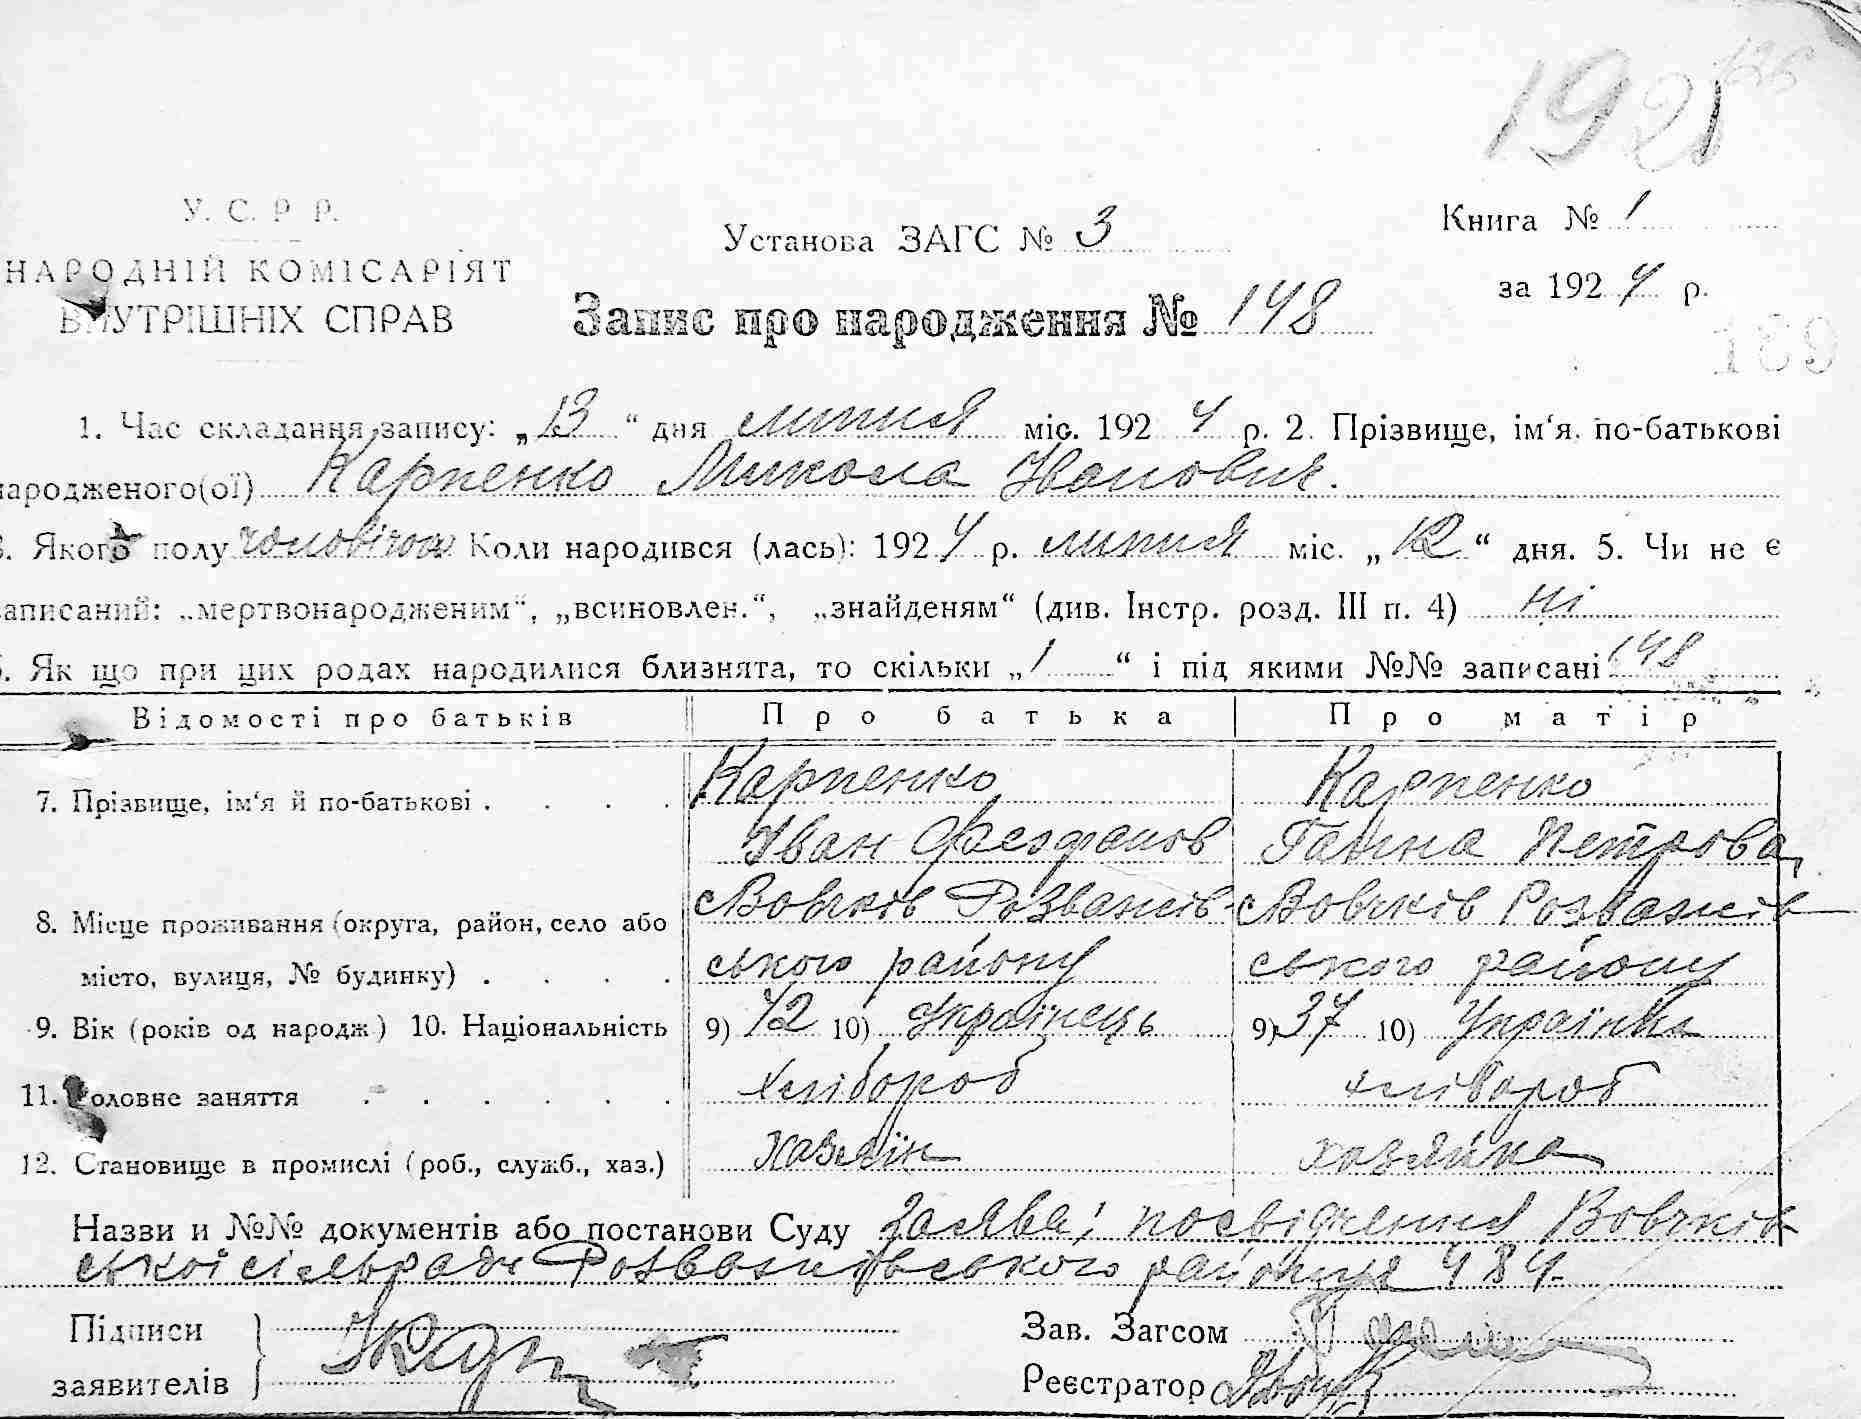 192
126
У. С. Р Р.
Установа ЗАГС № 3
Книга № 1
НАРОДНІЙ КОМІСАРІЯТ
за 192 4 р.
ВНУТРІШНІХ СПРАВ
Запис про народження № 148
169
1. Час складання запису: „13“ дня липня міс. 192 4 р. 2. Прізвище, ім‘я, по-батькові
народженого(ої) Карпенко Микола Іванович.
3. Якого полу чоловічоі Коли народився (лась): 192 4 р. липня міс. „12“ дня. 5. Чи не є
записаний: „мертвонародженим“, „всиновлен.“, „знайденям“ (див. Інстр. розд. III п. 4) ні
6. Як що при цих родах народилися близнята, то скільки „1“ і під якими №№ записані 148
Відомості про батьків Про батька Про матір
7. Прізвище, ім‘я й по-батькові . . . . Карпенко Карпенко
Іван Феофанов Ганна Петрова,
8. Місце проживання (округа, район, село або Вовчків Розважів- Вовчків Розважів
місто, вулиця, № будинку) . . . . ського району ського району
9. Вік (років од народж) 10. Національність 9) 42 10) Українець 9) 37 10) Українка
11. Головне заняття . . . . . . хлібороб хлібороб
12. Становище в промислі (роб., служб., хаз.) хазяїн хазяйка
Назви и №№ документів або постанови Суду Заява; посвідчення Вовчків
ської сільради Розважівського району 484.
Підписи
заявителів
Зав. Загсом
Реєстратор